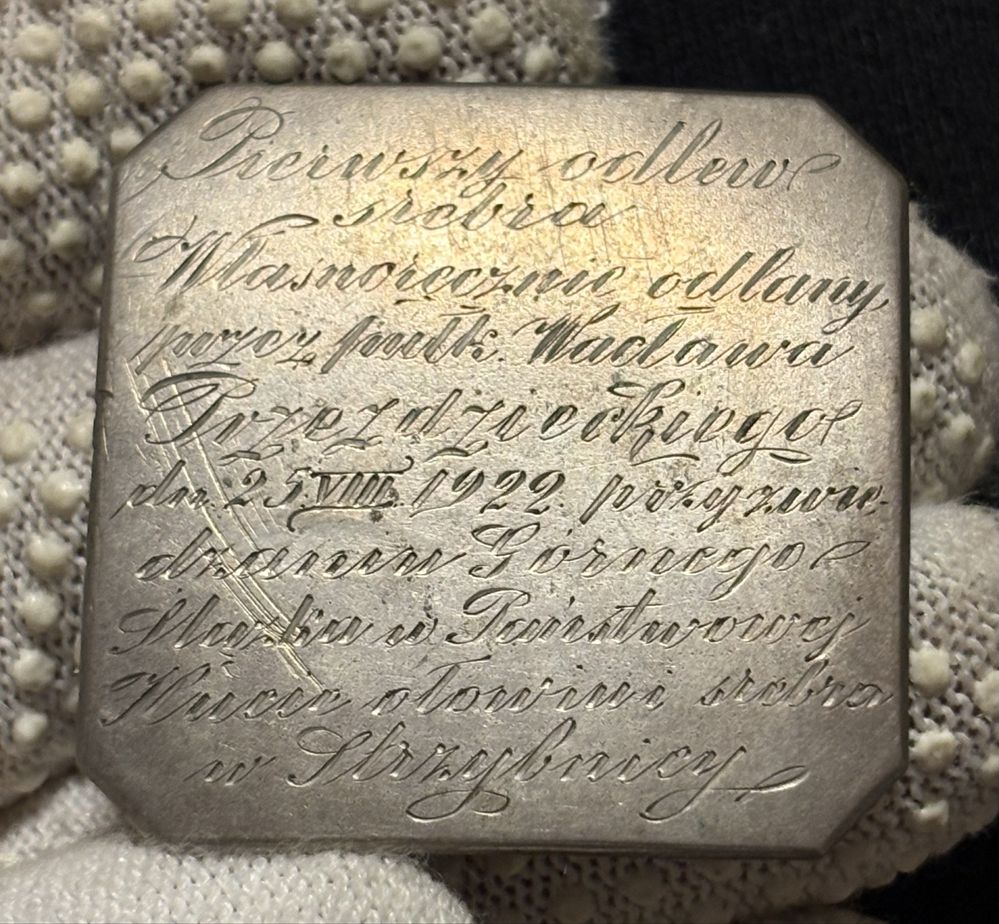 Pierwszy odlew
srebra
Własnoręcznie odlany
przez pułk. Wacława
Przezdzieckiego
dn. 25.VIII.1922. przy zwie-
dzaniu Górnego
Śląska w Państwowej
Hucie ołowiu i srebra
w Strzybnicy